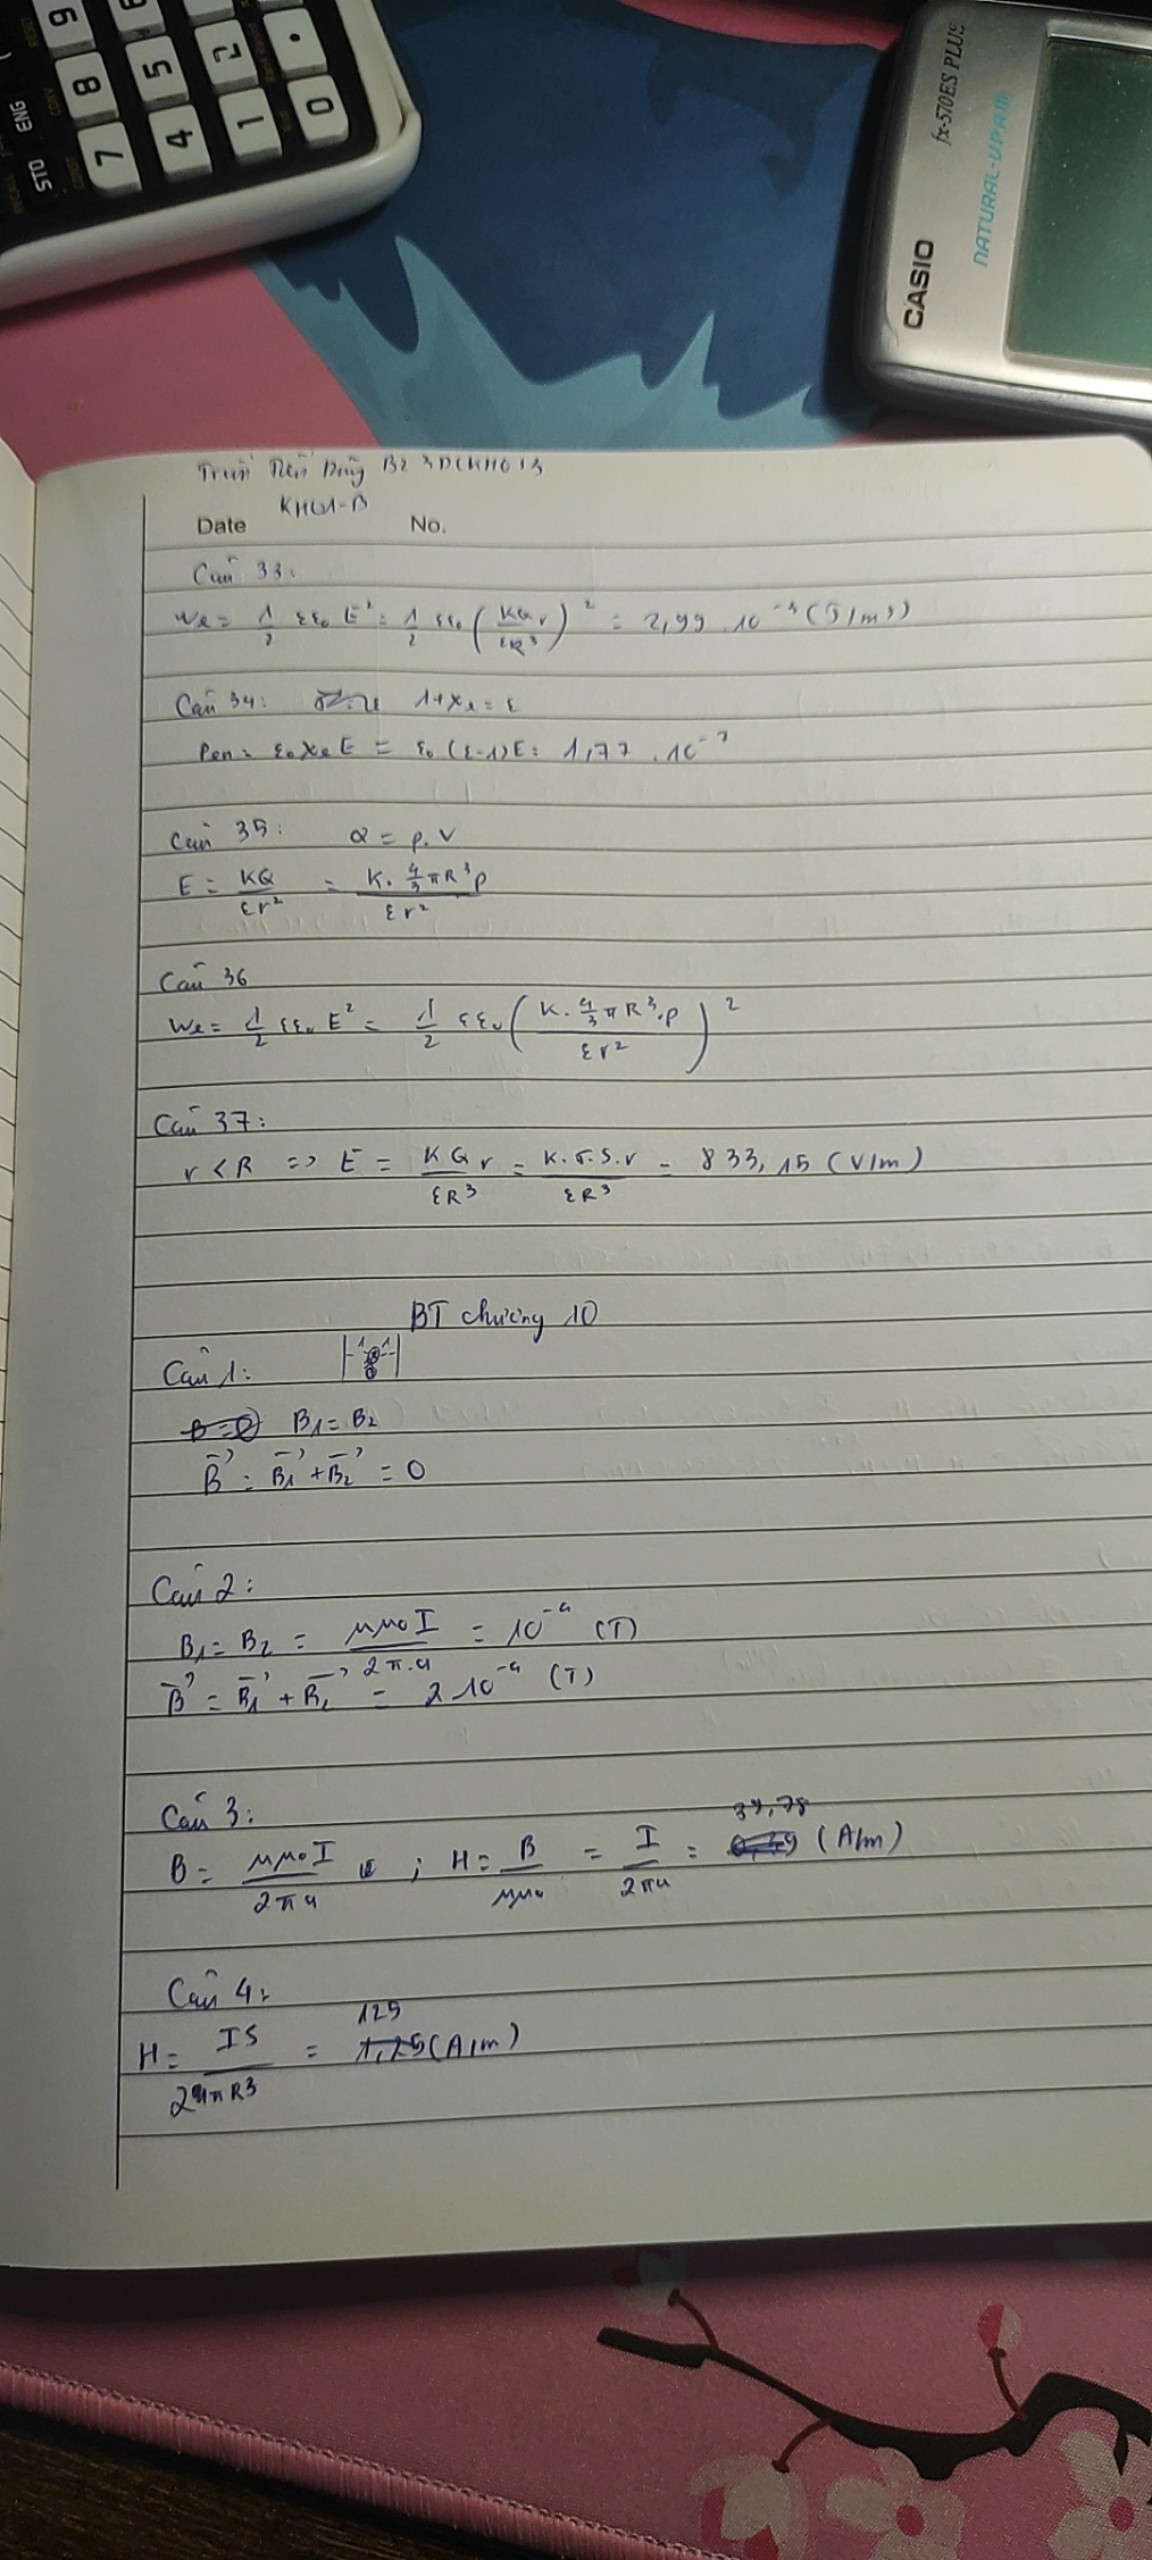 9
8
7
5
4
2
1
.
0
ENG
STO
fx-570ES PLUS
NATURAL-V.P.A.M.
CASIO
B2 3DCKH013
KHG1-B
Date No.
Câu 33:
We = 1/2 εε₀ E² = 1/2 εε₀ (KQr/εR³)² = 2,99 . 10⁻³ (J/m³)
Câu 34: 1+Xe = ε
Pen = ε₀XeE = ε₀(ε-1)E = 1,77 . 10⁻⁷
Câu 35: Q = ρ.V
E = KQ/εr² = K. 4/3 πR³ρ/εr²
Câu 36
We = 1/2 εε₀ E² = 1/2 εε₀ (K. 4/3 πR³.ρ/εr²)²
Câu 37:
r < R => E = KQr/εR³ = K.σ.S.r/εR³ = 833,15 (V/m)
BT chương 10
Câu 1:
B=0 B₁ = B₂
B⃗ = B⃗₁ + B⃗₂ = 0
Câu 2:
B₁ = B₂ = μμ₀I/2π.a = 10⁻⁴ (T)
B⃗ = B⃗₁ + B⃗₂ = 2 10⁻⁴ (T)
Câu 3:
B = μμ₀I/2πa ; H = B/μμ₀ = I/2πa = 39,78 (A/m)
Câu 4:
H = IS/2πR³ = 125 1,25 (A/m)